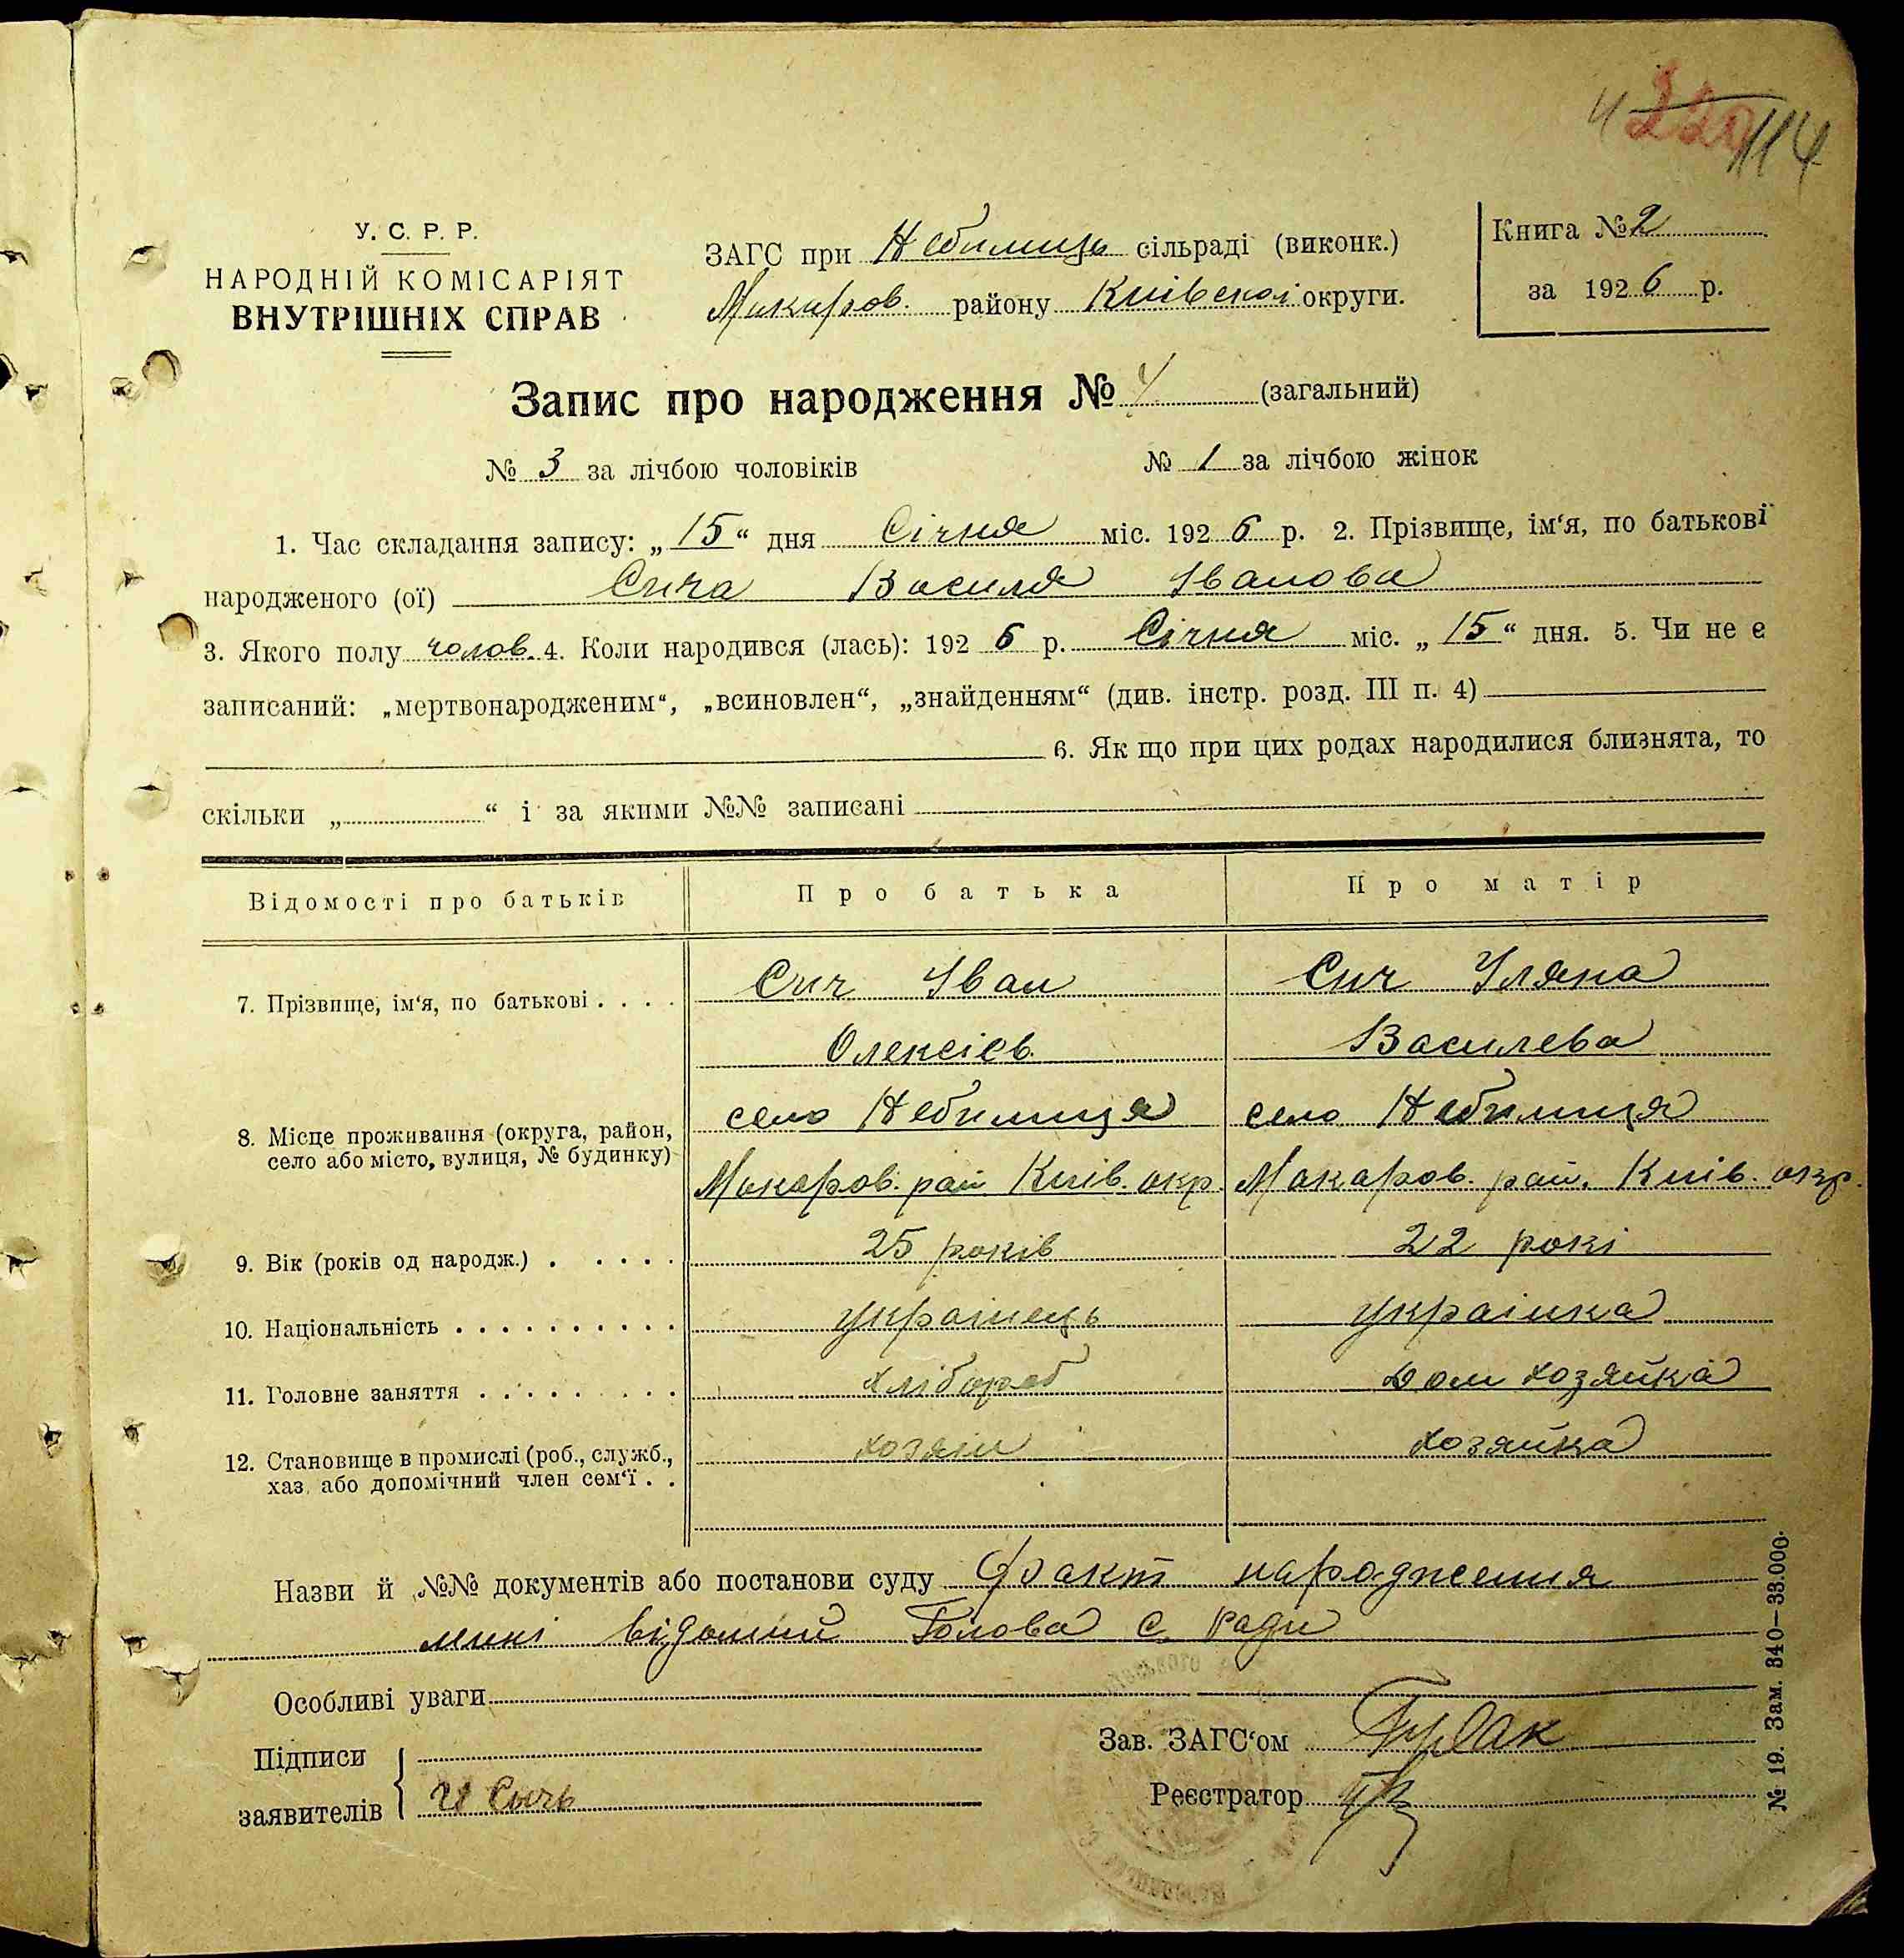 4 114
У. С. Р. Р.
НАРОДНІЙ КОМІСАРІЯТ
ВНУТРІШНІХ СПРАВ
ЗАГС при Небилиць сільраді (виконк.)
Макаров. району Київскої округи.
Книга № 2
за 1926 р.
Запис про народження № 4 (загальний)
№ 3 за лічбою чоловіків № 1 за лічбою жінок
1. Час складання запису: „15“ дня Січня міс. 1926 р. 2. Прізвище, ім‘я, по батькові
народженого (ої) Сича Василя Іванова
3. Якого полу чолов. 4. Коли народився (лась): 1926 р. Січня міс. „15“ дня. 5. Чи не є
записаний: „мертвонародженим“, „всиновлен“, „знайденням“ (див. інстр. розд. III п. 4)
6. Як що при цих родах народилися близнята, то
скільки „ “ і за якими №№ записані
Відомості про батьків Про батька Про матір
7. Прізвище, ім‘я, по батькові . . . . Сич Іван Сич Уляна
Олексієв Василева
8. Місце проживання (округа, район, село Небилиця село Небилиця
село або місто, вулиця, № будинку) Макаров. рай. Київ. окр. Макаров. рай. Київ. окр.
9. Вік (років од народж.) . . . . . 25 років 22 рокі
10. Національність . . . . . . . . . . українець українка
11. Головне заняття . . . . . . . . . хлібороб дом хозяйка
12. Становище в промислі (роб., служб., хозяін хозяйка
хаз. або допомічний член сем‘ї . .
Назви й №№ документів або постанови суду Факт народження
мині відомий Голова С. Ради
Особливі уваги
Підписи
заявителів И Сычь
Зав. ЗАГС‘ом
Реєстратор
№ 19. Зам. 840—33.000.